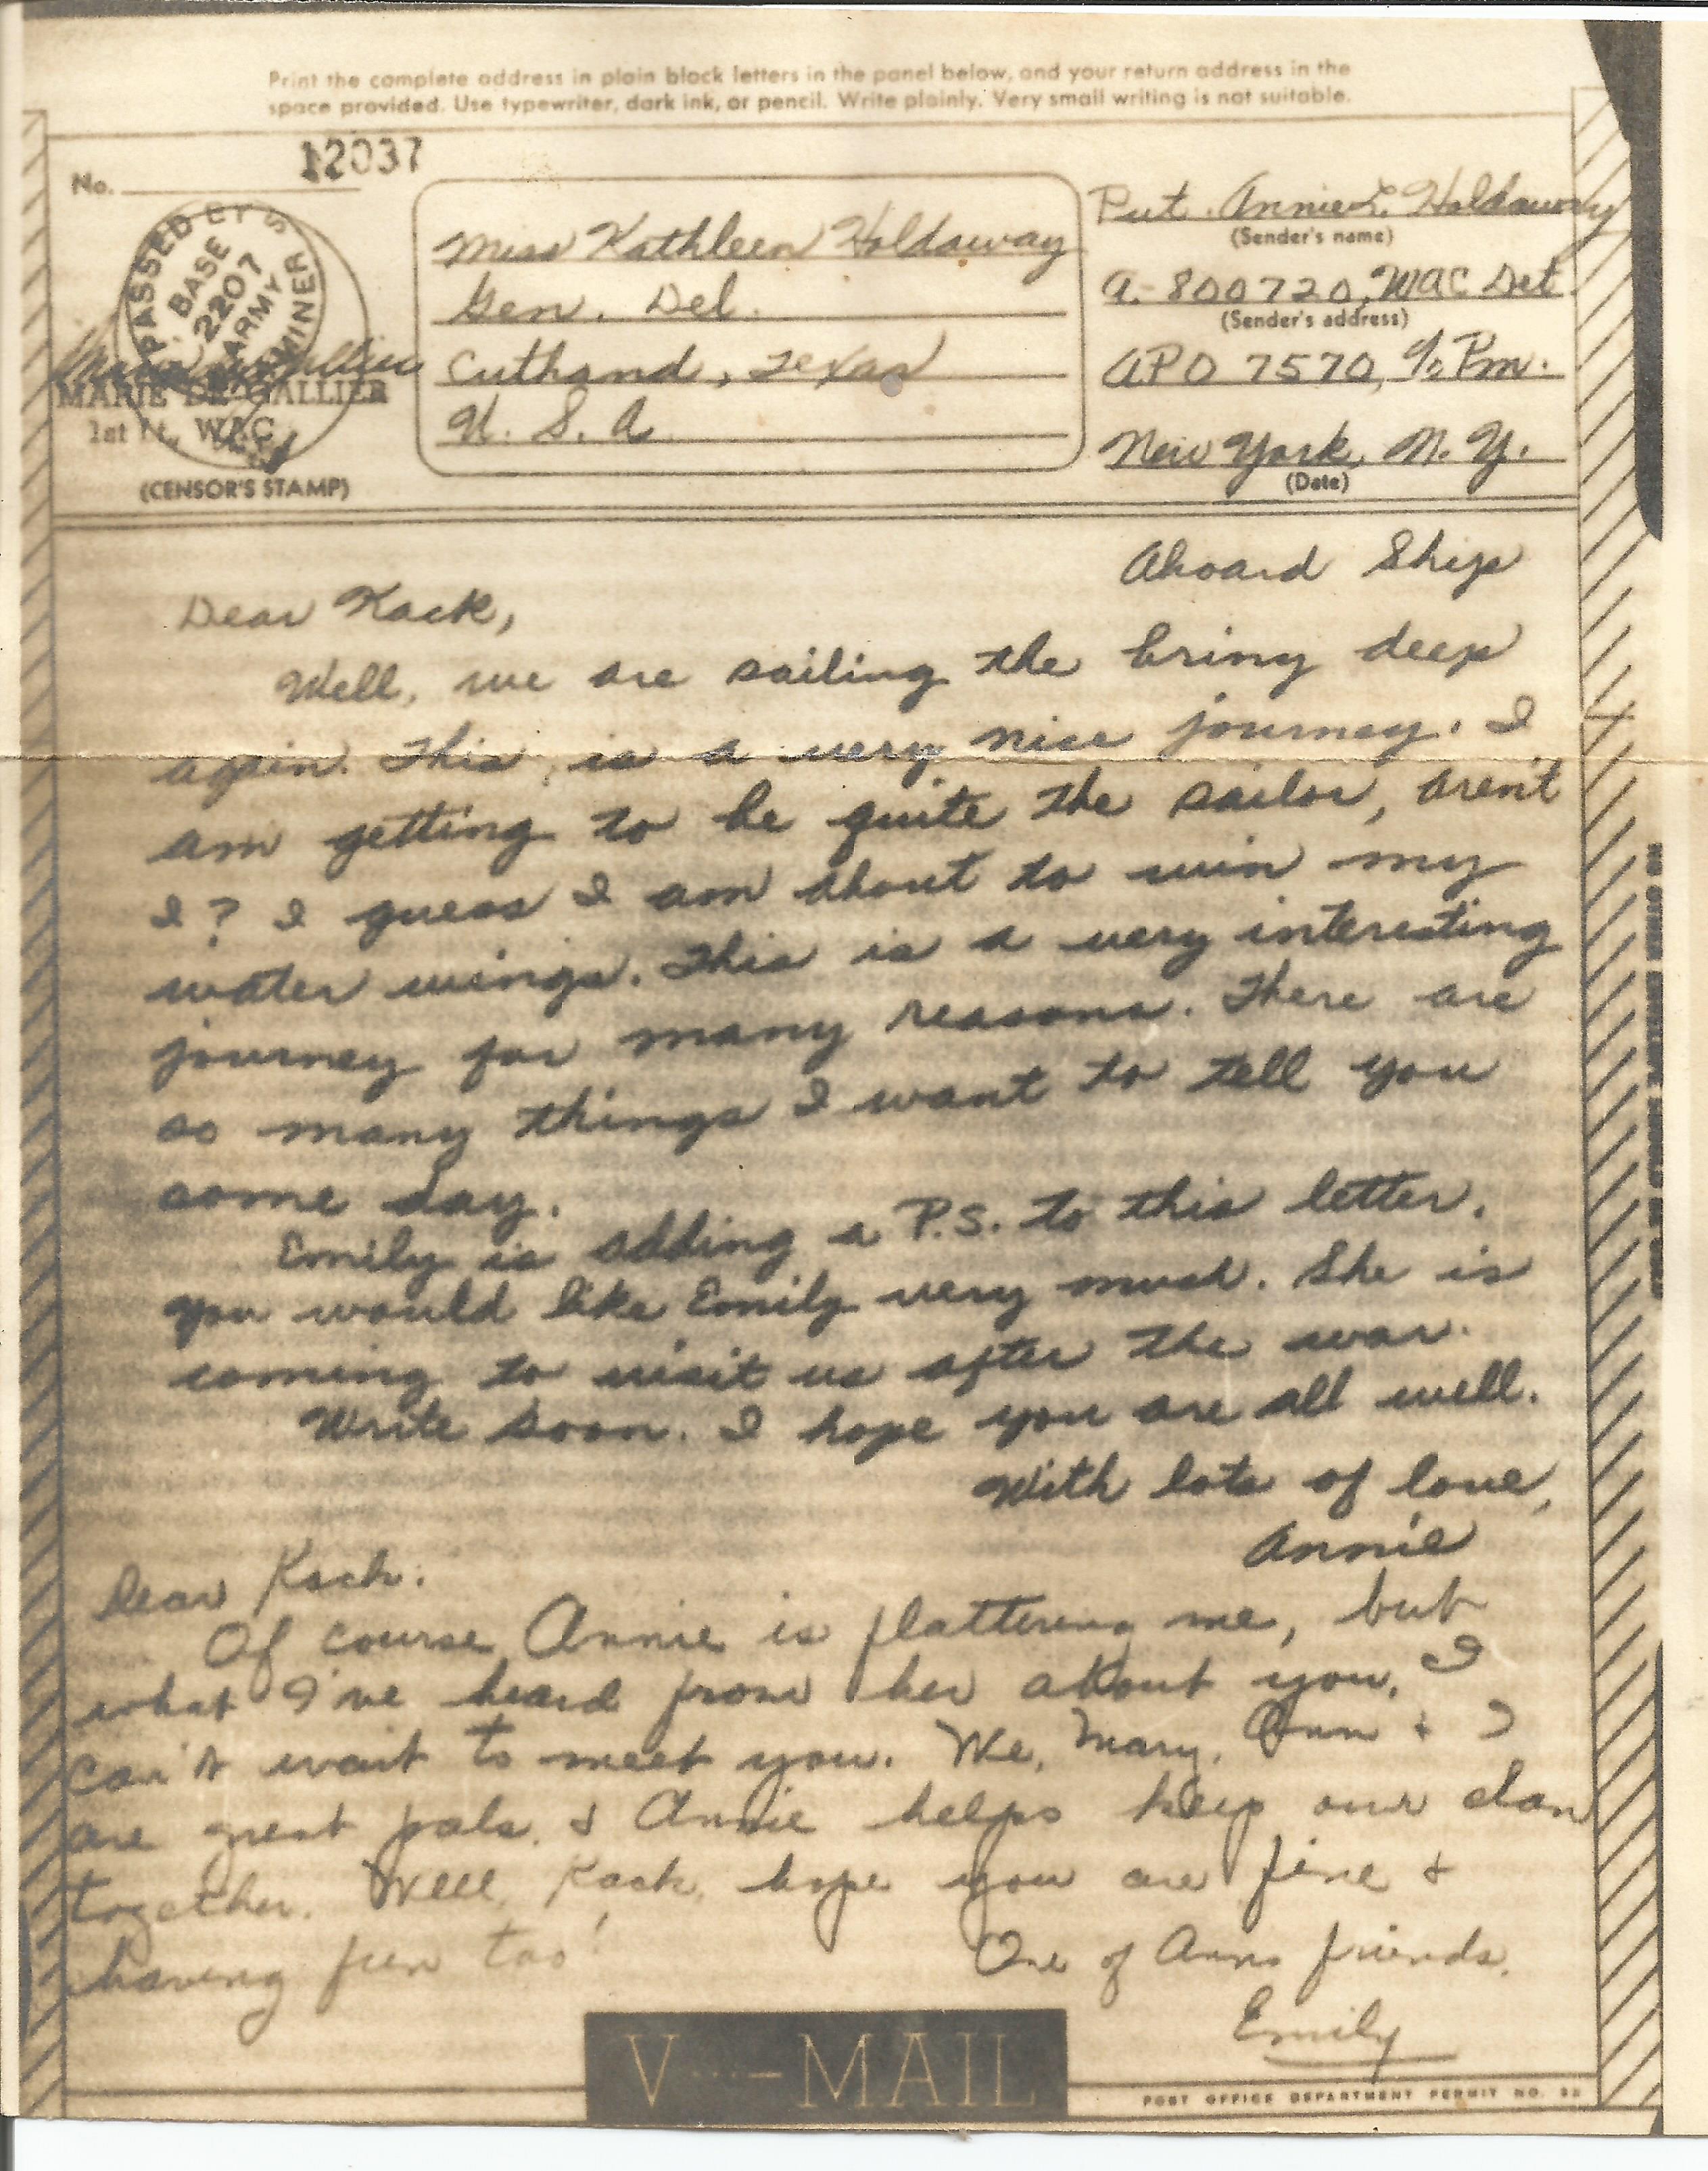 Print the complete address in plain block letters in the panel below, and your return address in the
space provided. Use typewriter, dark ink, or pencil. Write plainly. Very small writing is not suitable.
No. 12037
PASSED BY U.S
BASE
2207
ARMY
EXAMINER
MARIE DE GALLIER
1st Lt., WAC
(CENSOR'S STAMP)
Miss Kathleen Holdaway
Gen. Del.
Cuthand, Texas
U. S. A.
Pvt. Annie L. Holdaway
(Sender's name)
A-800720, WAC Det
(Sender's address)
APO 7570, c/o Pm.
New York, N. Y.
(Date)
Aboard Ship
Dear Kack,
Well, we are sailing the briny deep
again. This is a very nice journey. I
am getting to be quite the sailor, aren't
I? I guess I am about to win my
water wings. This is a very interesting
journey for many reasons. There are
so many things I want to tell you
some day.
Emily is adding a P.S. to this letter.
You would like Emily very much. She is
coming to visit us after the war.
Write soon. I hope you are all well.
With lots of love,
Annie
Dear Kack:
Of course Annie is flattering me, but
what I've heard from her about you, I
can't wait to meet you. We, Mary, Ann & I
are great pals & Annie helps keep our clan
together. Well, Kack, hope you are fine &
having fun too!
One of Anns friends,
Emily
V···-MAIL
POST OFFICE DEPARTMENT PERMIT NO.